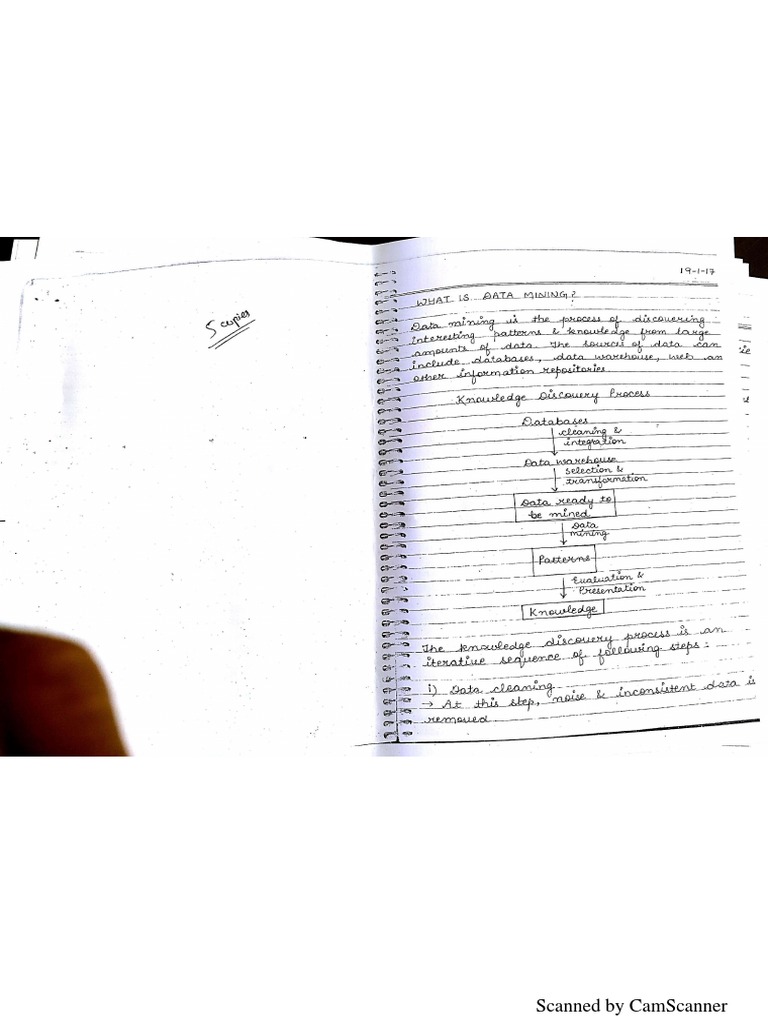 5 copies
19-1-17
WHAT IS DATA MINING?
Data mining is the process of discovering
interesting patterns & knowledge from large
amounts of data. The sources of data can
include databases, data warehouse, web an
other information repositories
Knowledge Discovery Process
Databases
cleaning &
integration
Data warehouse
selection &
transformation
Data ready to
be mined
Data
mining
Patterns
Evaluation &
Presentation
Knowledge
The knowledge discovery process is an
iterative sequence of following steps :
i) Data cleaning
→ At this step, noise & inconsistent data is
removed
Scanned by CamScanner